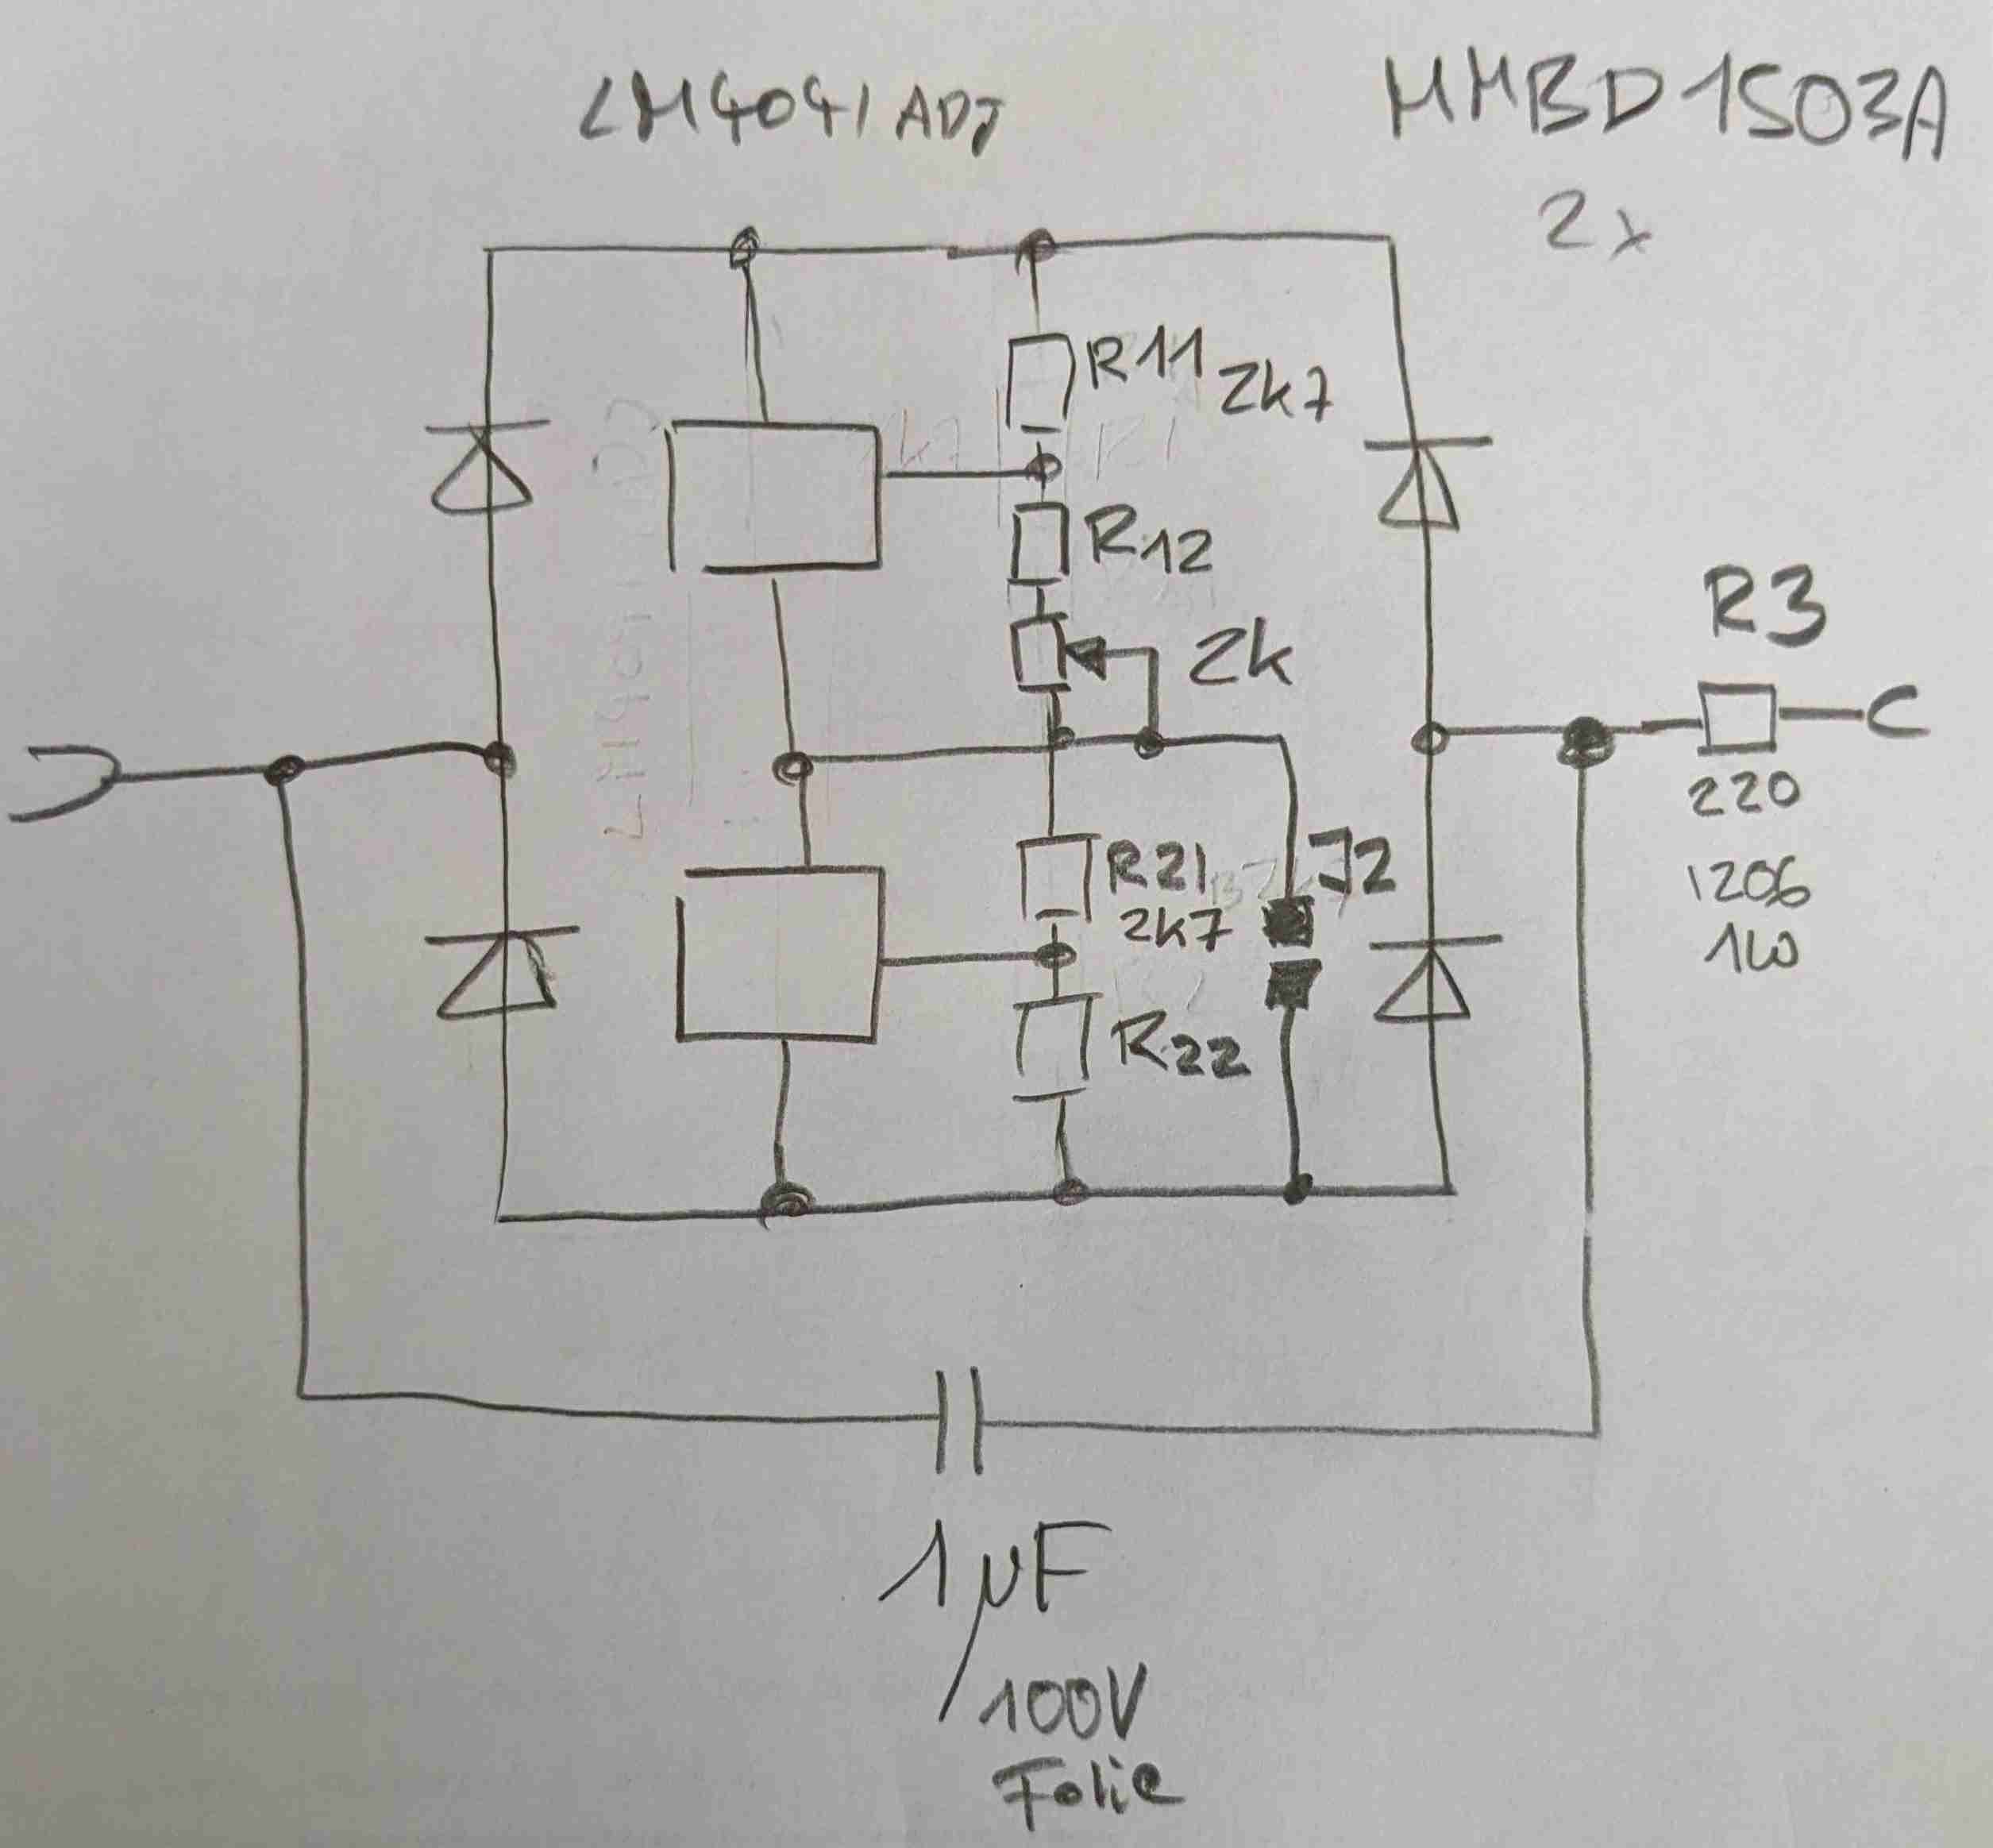 LM4041ADJ
MMBD1503A
2x
R11 2k7
R12
2k
R3
220
1206
1W
R21
2k7
J2
R22
1µF
/100V
Folie